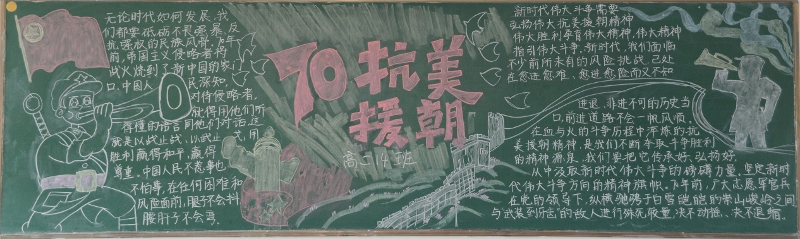 无论时代如何发展,我
们都要砥砺不畏强暴、反
抗强权的民族风骨。70年
前,帝国主义侵略者将
战火烧到了新中国的家门
口。中国人民深知,
对待侵略者,
就得用他们听
得懂的语言同他们对话,这
就是以战止战、以武止戈,用
胜利赢得和平、赢得
尊重。中国人民不惹事也
不怕事,在任何困难和
风险面前,腿子不会抖,
腰肝子不会弯。
70抗美
援朝
高二14班
新时代伟大斗争需要
弘扬伟大抗美援朝精神
伟大胜利孕育伟大精神,伟大精神
指引伟大斗争。新时代,我们面临
不少前所未有的风险挑战,已处
在愈进愈难、愈进愈险而又不知
进退、非进不可的历史当
口,前进道路不会一帆风顺。
在血与火的斗争历程中淬炼的抗
美援朝精神,是我们不断夺取斗争胜利
的精神源泉。我们要把它传承好、弘扬好,
从中汲取新时代伟大斗争的磅礴力量,坚定新时
代伟大斗争方向的精神旗帜。70年前,广大志愿军官兵
在党的领导下,纵横驰骋于白雪皑皑的崇山峻岭之间,
与武装到牙齿的敌人进行殊死较量,决不动摇、决不退缩